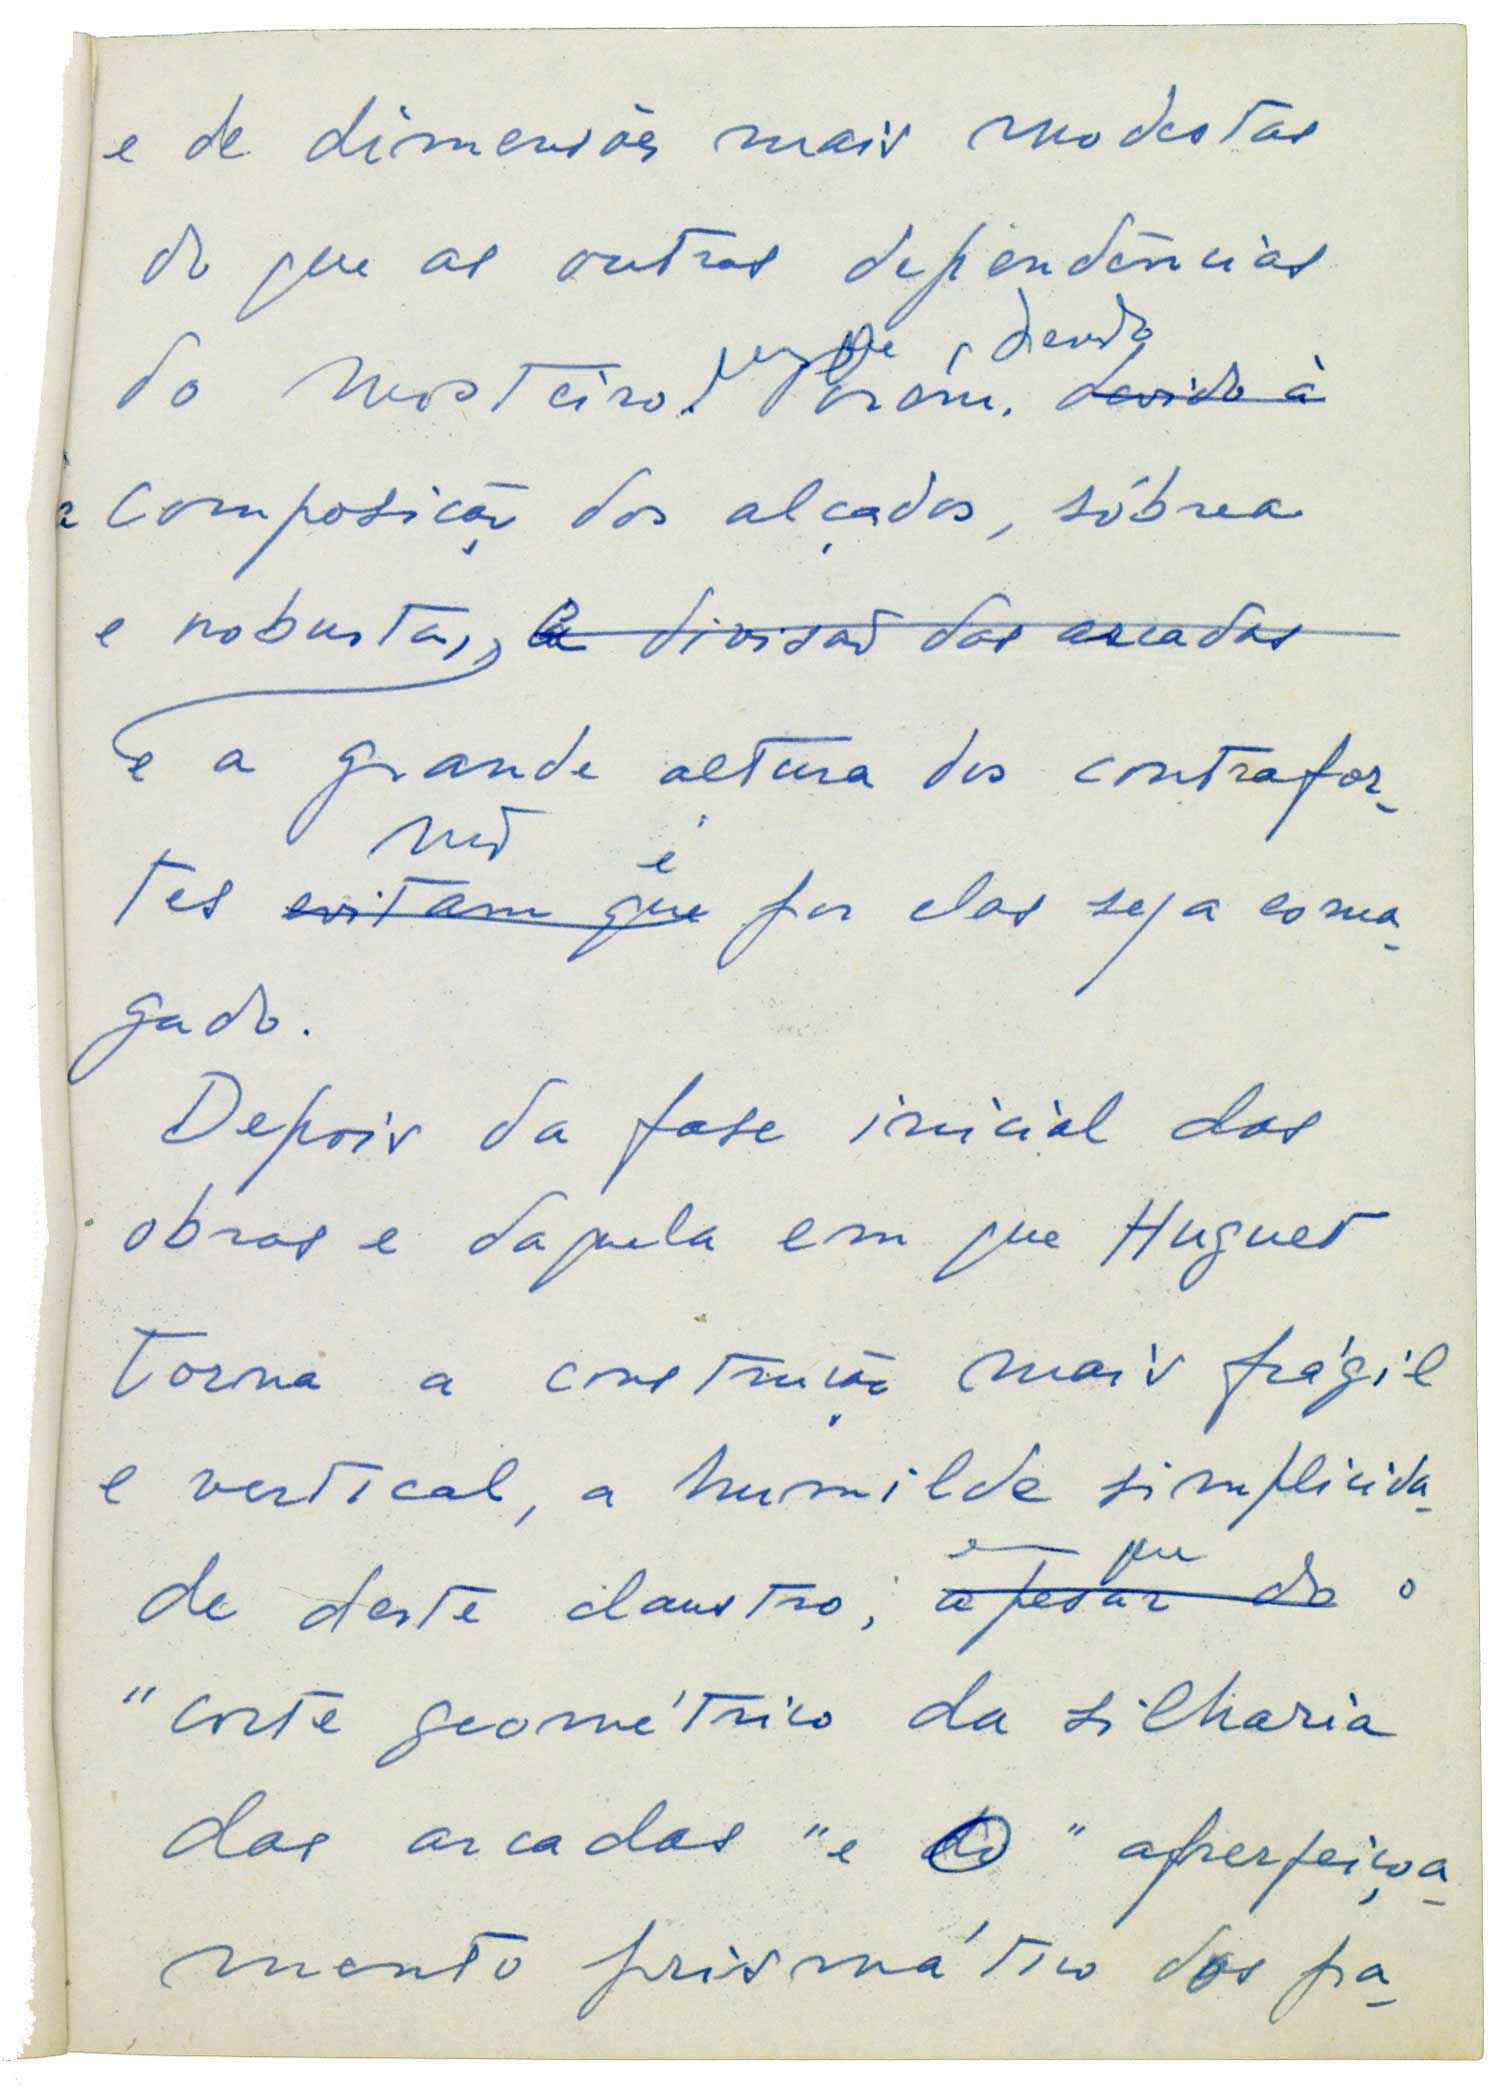 e de dimensões mais modestas
do que as outras dependências
do Mosteiro. Porém, devido à
composição dos alçados, sóbrea
e robusta, a divisão das arcadas
e a grande altura dos contrafor-
não é
tes evitam que por elas seja esma-
gado.
Depois da fase inicial das
obras e daquela em que Huguet
torna a construção mais frágil
e vertical, a humilde simplicida-
em que
de deste claustro, apesar do o
"corte geométrico da silharia
das arcadas" e do "aperfeiçoa-
mento prismático dos pa-